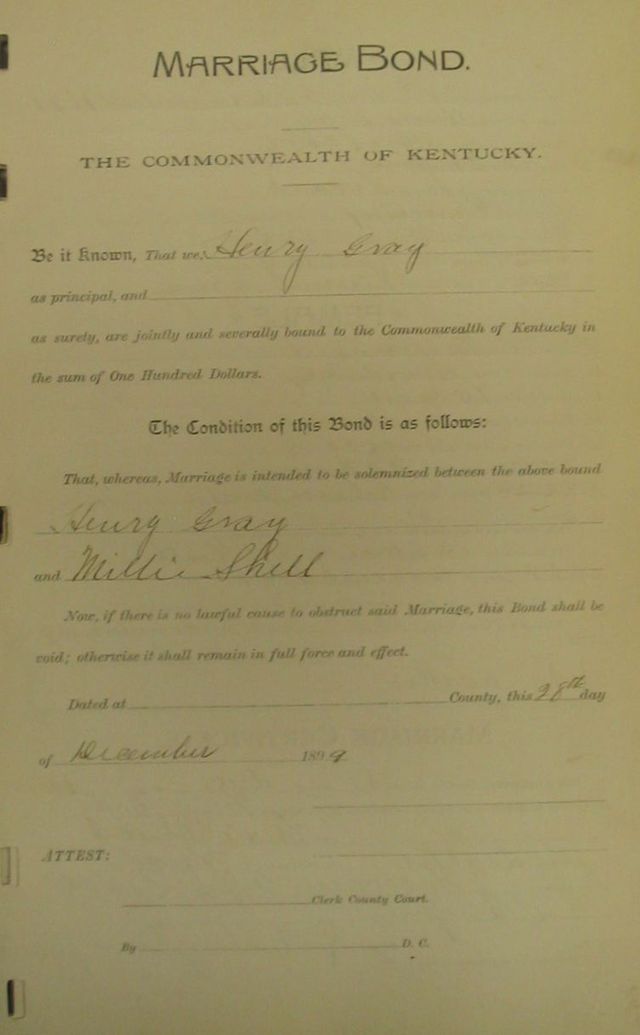 MARRIAGE BOND.
THE COMMONWEALTH OF KENTUCKY.
Be it known, That we, Henry Gray
as principal, and
as surety, are jointly and severally bound to the Commonwealth of Kentucky in
the sum of One Hundred Dollars.
The Condition of this Bond is as follows:
That, whereas, Marriage is intended to be solemnized between the above bound
Henry Gray
and Millie Shell
Now, if there is no lawful cause to obstruct said Marriage, this Bond shall be
void; otherwise it shall remain in full force and effect.
Dated at County, this 28th day
of December 1899
ATTEST:
Clerk County Court.
By D. C.